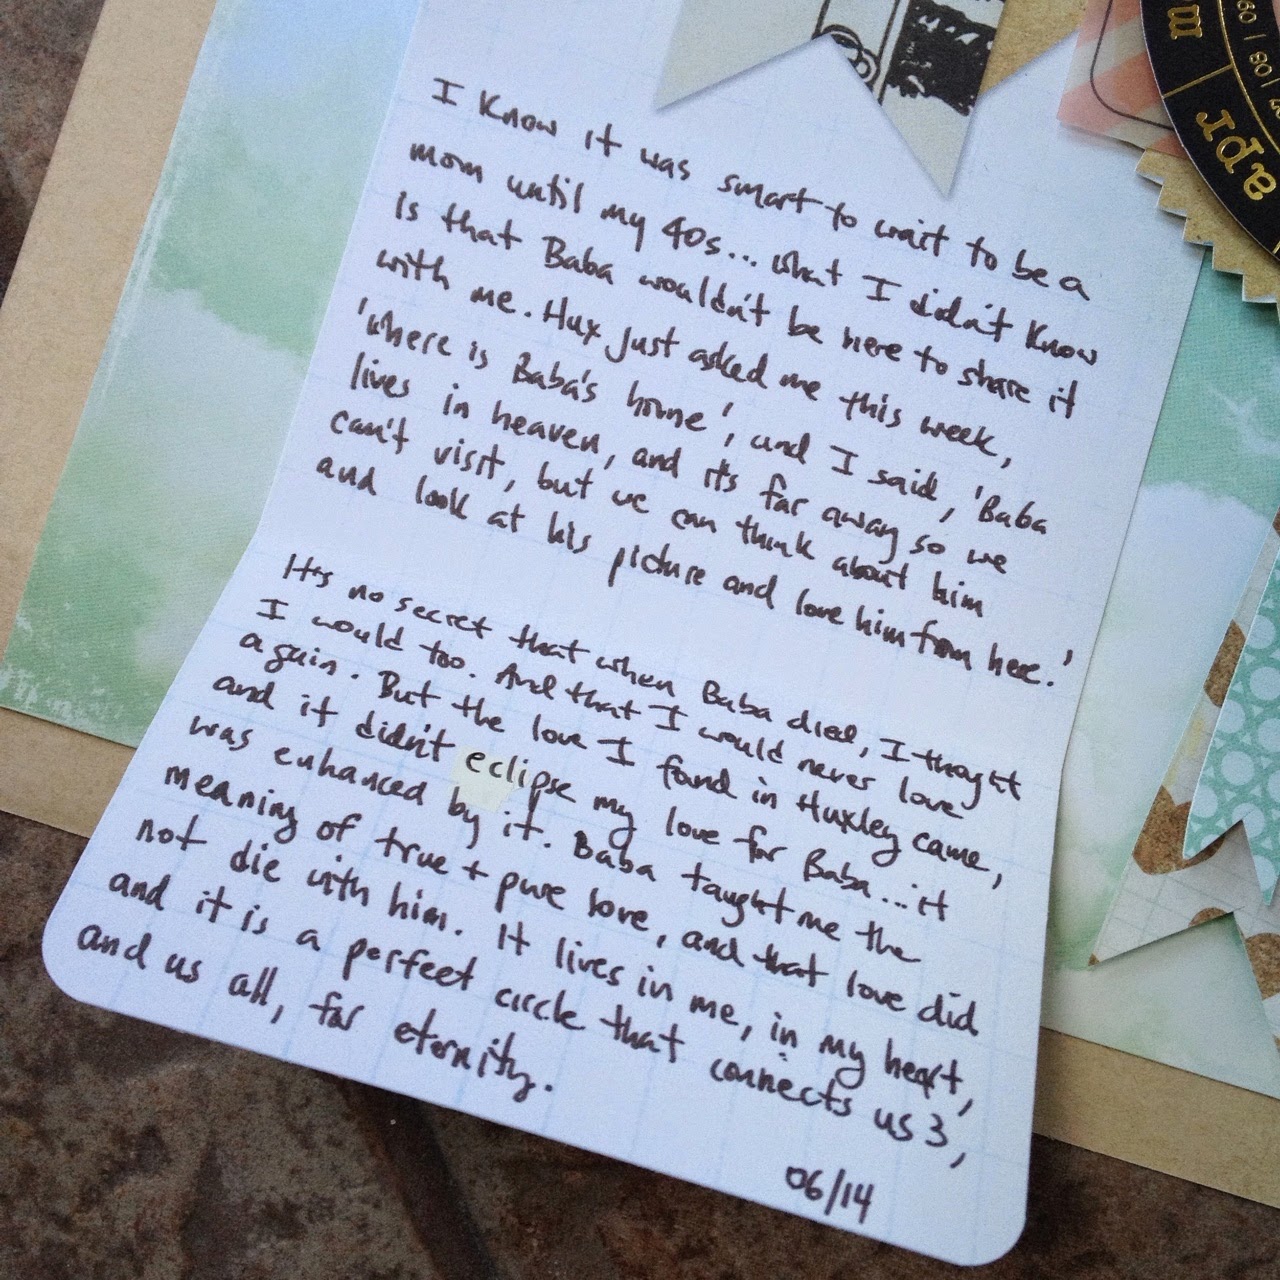 I Know it was smart to wait to be a
mom until my 40s... what I didn't Know
is that Baba wouldn't be here to share it
with me. Hux just asked me this week,
'where is Baba's home', and I said, 'Baba
lives in heaven, and it's far away so we
can't visit, but we can think about him
and look at his picture and love him from here.'
It's no secret that when Baba died, I thought
I would too. And that I would never love
again. But the love I found in Huxley came,
and it didn't eclipse my love for Baba... it
was enhanced by it. Baba taught me the
meaning of true + pure love, and that love did
not die with him. It lives in me, in my heart,
and it is a perfect circle that connects us 3,
and us all, for eternity.
06/14
apr
60 | 80